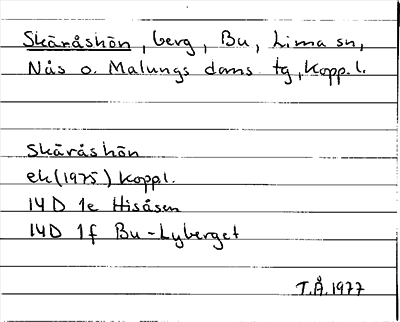 Skäråshön, berg, Bu, Lima sn,
Nås o. Malungs doms. tg, Kopp. l.
Skäråshön
ek (1975) Koppl.
14 D 1e Hisåsen
14 D 1f Bu-Lyberget
T.Å. 1977